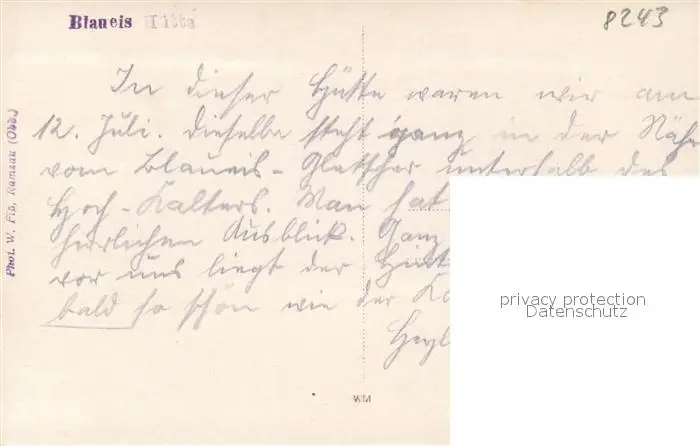 Blaueis Hütte
8243
In dieser Hütte waren wir am
12. Juli. Dieselbe steht ganz in der Näh
vom Blaueis-Gletscher unterhalb des
Hoch-Kalters. Man hat
herrlichen Ausblick. Ganz
vor uns liegt der Hint
bald so schön wie der
Herzl
Phot. W. Fiß, Ramsau (Obb.)
privacy protection
Datenschutz
WM